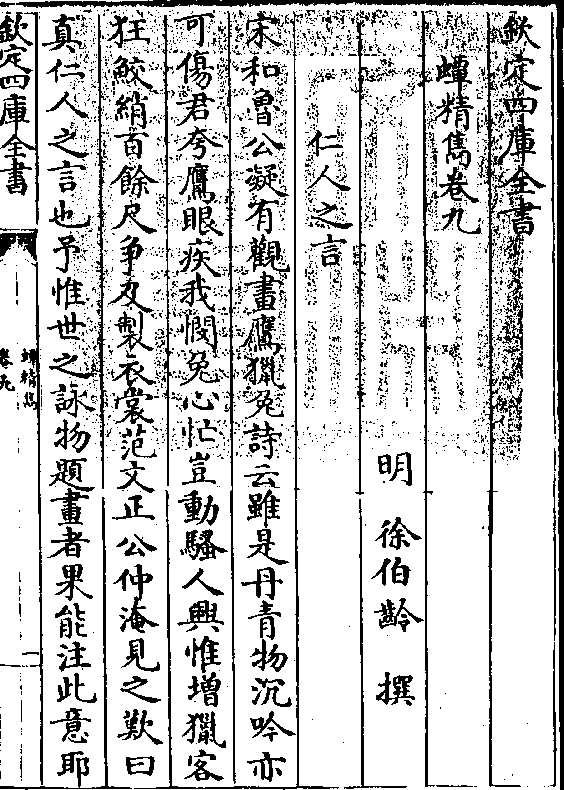 欽定四庫全書
蟫精雋卷九
明　徐伯齡　撰
仁人之言
宋和魯公凝有觀畫鷹獵兔詩云雖是丹青物沉吟亦
可傷君夸鷹眼疾我憫兔心忙豈動騷人興惟增獵客
狂鮫綃百餘尺爭及製衣裳范文正公仲淹見之歎曰
真仁人之言也予惟世之詠物題畫者果能注此意耶
欽定四庫全書
蟫精雋
卷九
一